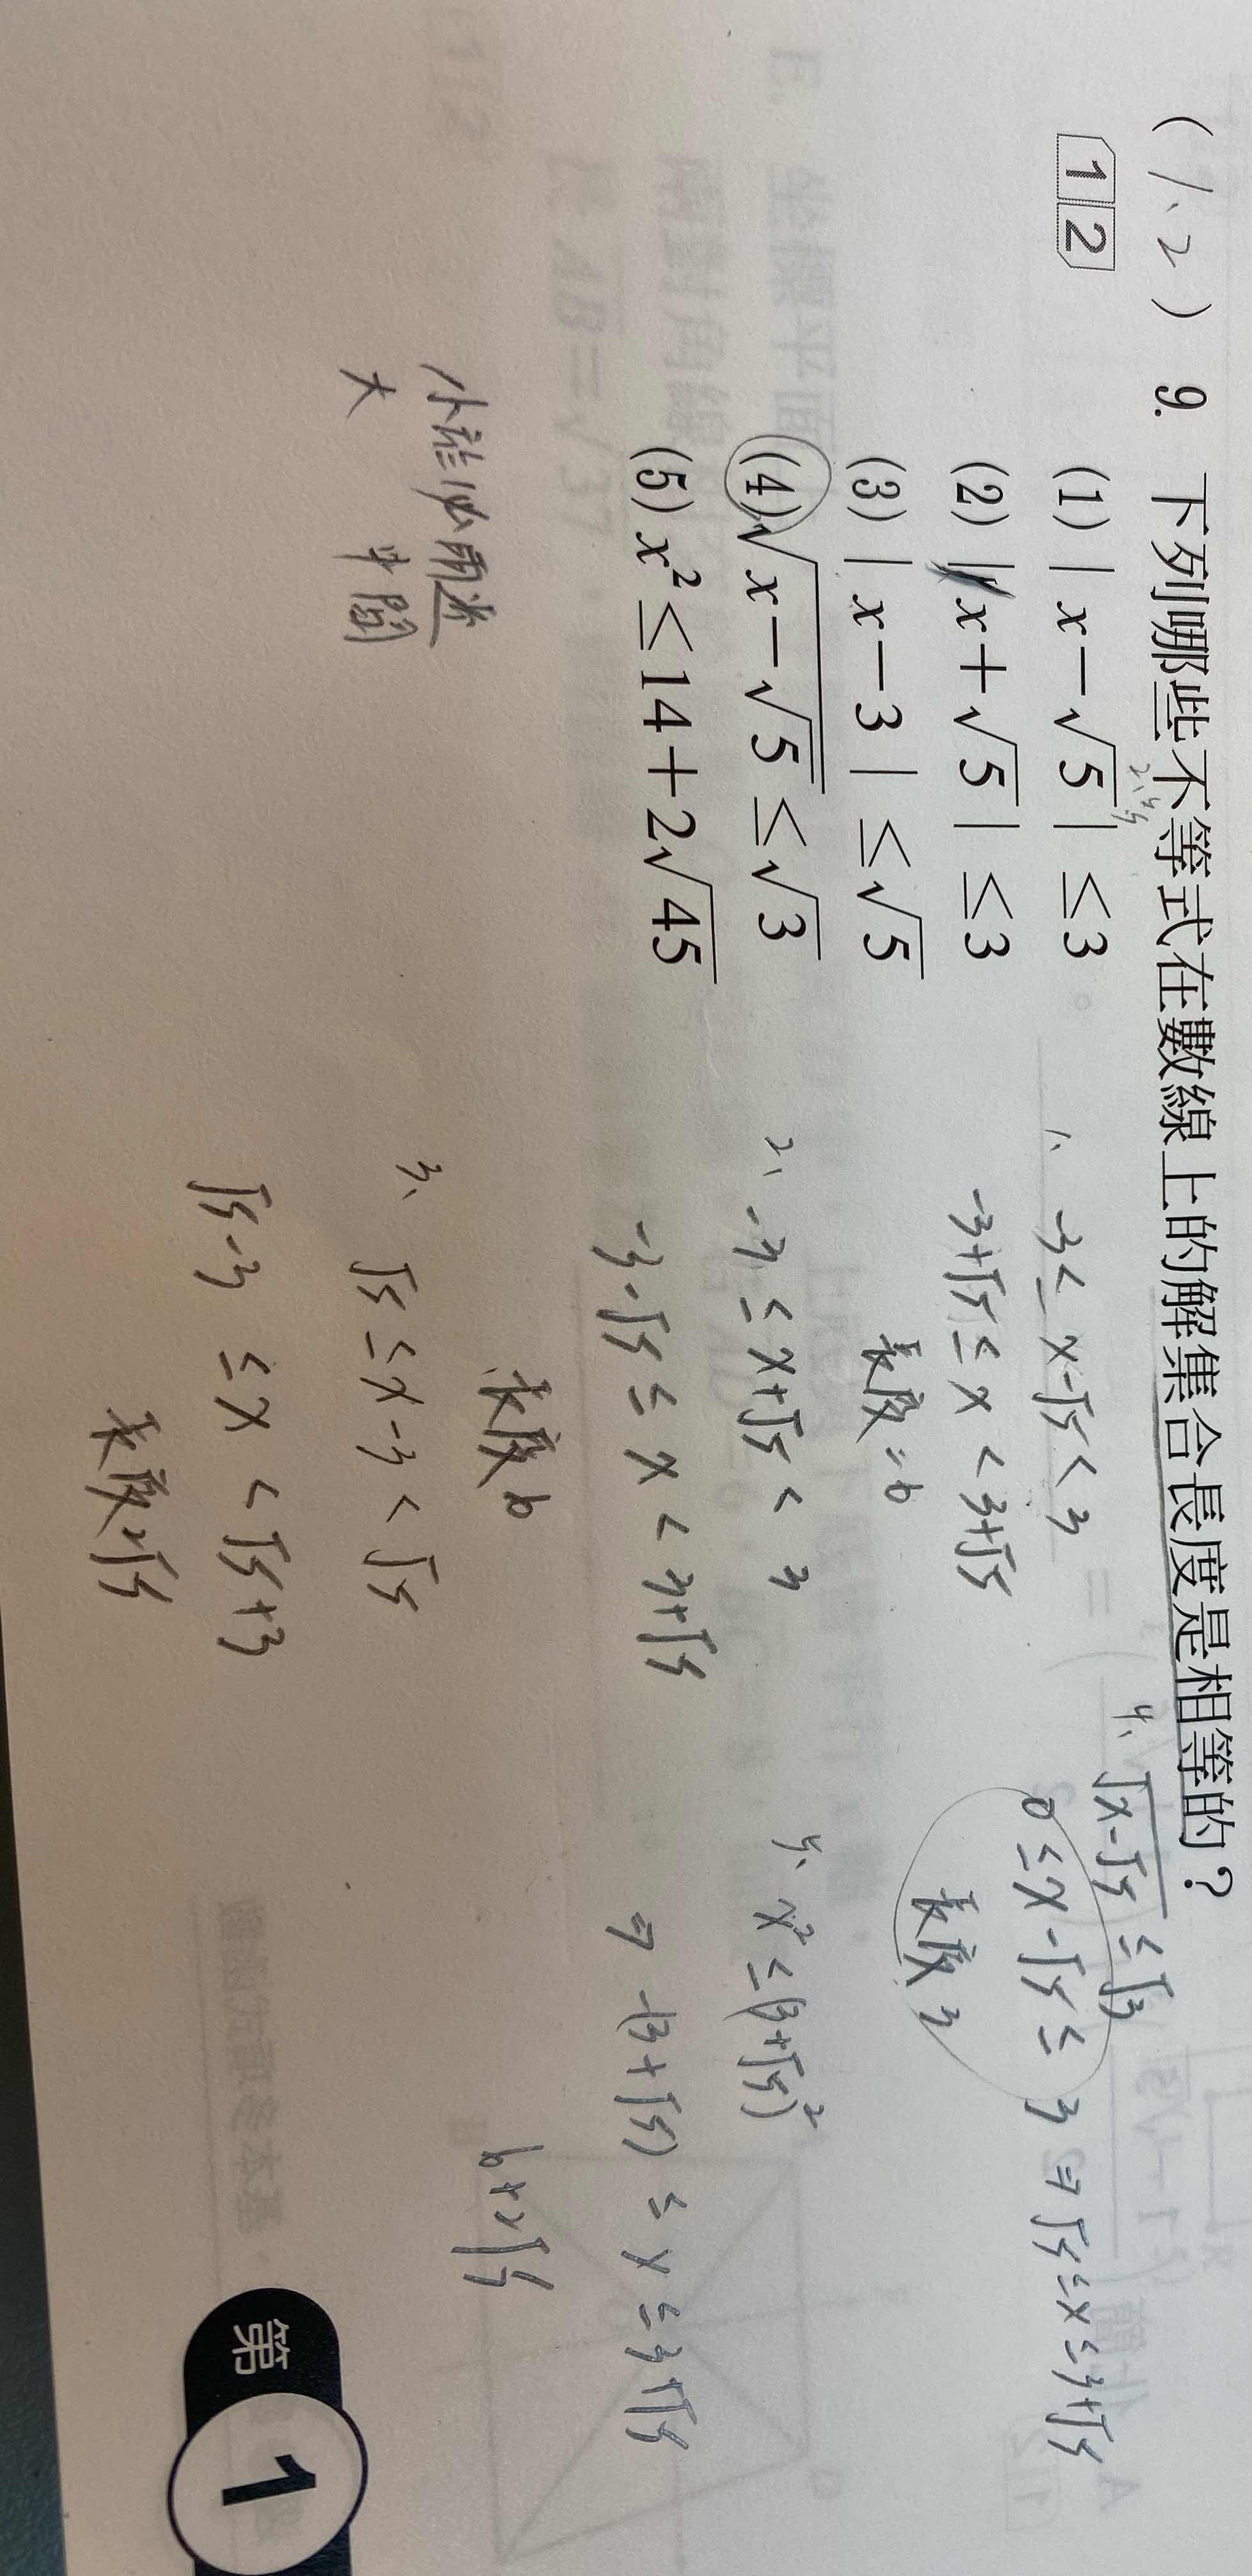 (1、2) 9. 下列哪些不等式在數線上的解集合長度是相等的?
1 2
(1) | x − √5 | ≤ 3
(2) | x + √5 | ≤ 3
(3) | x − 3 | ≤ √5
(4) √(x − √5) ≤ √3
(5) x² ≤ 14 + 2√45
1、 -3 ≤ x-√5 < 3
-3+√5 ≤ x < 3+√5
長度=6
2、 -3 ≤ x+√5 < 3
-3-√5 ≤ x < 3+√5
長度6
3、 √5 ≤ x-3 < √5
√5-3 ≤ x < √5+3
長度2√5
4、 √(x-√5) ≤ √3
0 ≤ x-√5 ≤ 3 ⇒ √5 ≤ x ≤ 3+√5
長度3
5、 x² ≤ (3+√5)²
⇒ -(3+√5) ≤ x ≤ 3+√5
6+2√5
大 中間
第 1